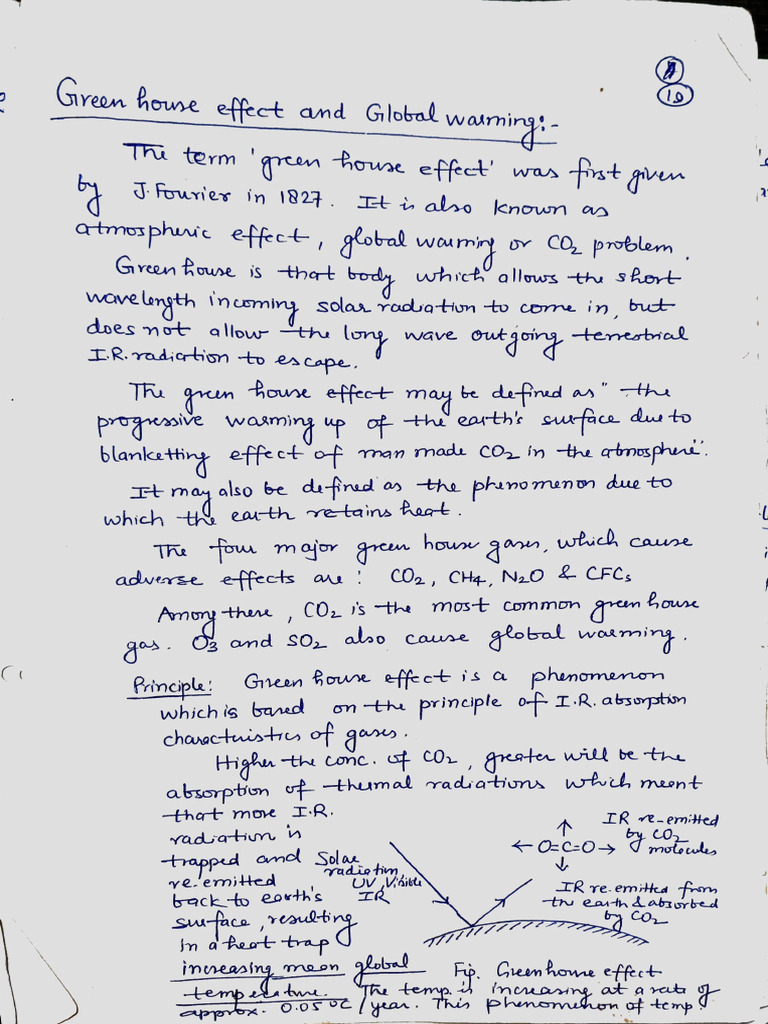 10
Green house effect and Global warming:-
The term 'green house effect' was first given
by J. Fourier in 1827. It is also known as
atmospheric effect, global warming or CO2 problem.
Green house is that body which allows the short
wavelength incoming solar radiation to come in, but
does not allow the long wave outgoing terrestrial
I.R. radiation to escape.
The green house effect may be defined as "the
progressive warming up of the earth's surface due to
blanketting effect of man made CO2 in the atmosphere".
It may also be defined as the phenomenon due to
which the earth retains heat.
The four major green house gases, which cause
adverse effects are : CO2, CH4, N2O & CFCs
Among these, CO2 is the most common green house
gas. O3 and SO2 also cause global warming.
Principle: Green house effect is a phenomenon
which is based on the principle of I.R. absorption
characteristics of gases.
Higher the conc. of CO2, greater will be the
absorption of thermal radiations which ment
that more I.R.
radiation is
trapped and
re-emitted
back to earth's
surface, resulting
in a heat trap
increasing mean global
temperature. The temp. is increasing at a rate of
approx. 0.05 °C / year. This phenomenon of temp.
Solar
radiation,
UV, Visible
IR
O=C=O
IR re-emitted
by CO2
molecules
IR re-emitted from
the earth & absorbed
by CO2
Fig. Green house effect